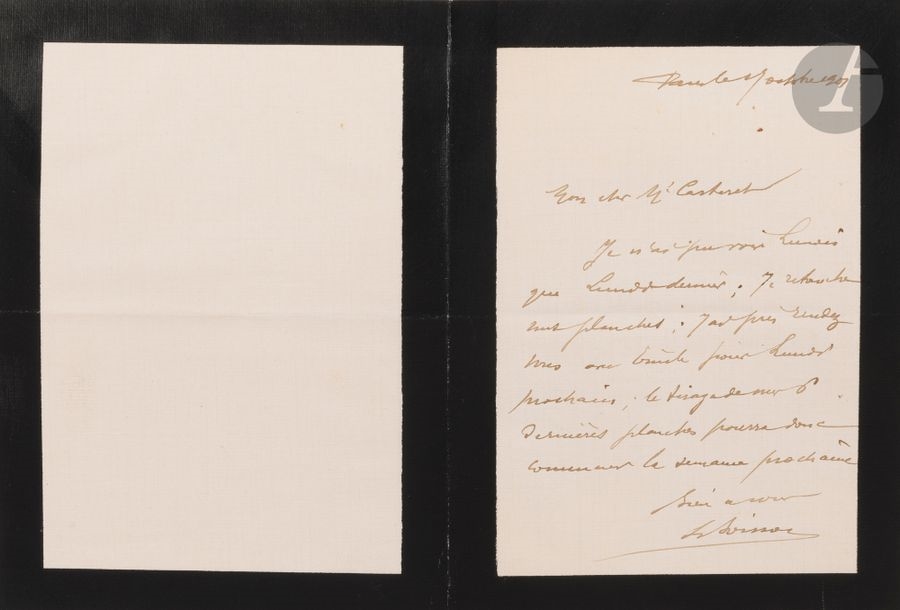 Paris le octobre 190
Mon cher Mr Carteret
Je n'ai pu voir
que Lundi dernier ; Je retouche
mes planches ; J'ai pris rendez
vous avec pour Lundi
prochain ; le tirage de mes 6
dernières planches pourra donc
commencer la semaine prochaine
Bien a vous
L Boisson